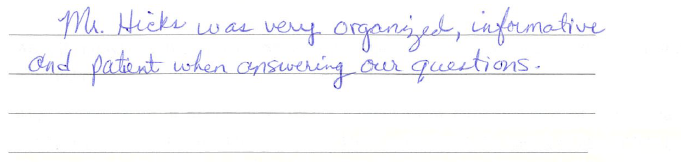 Mr. Hicks was very organized, informative
and patient when answering our questions.